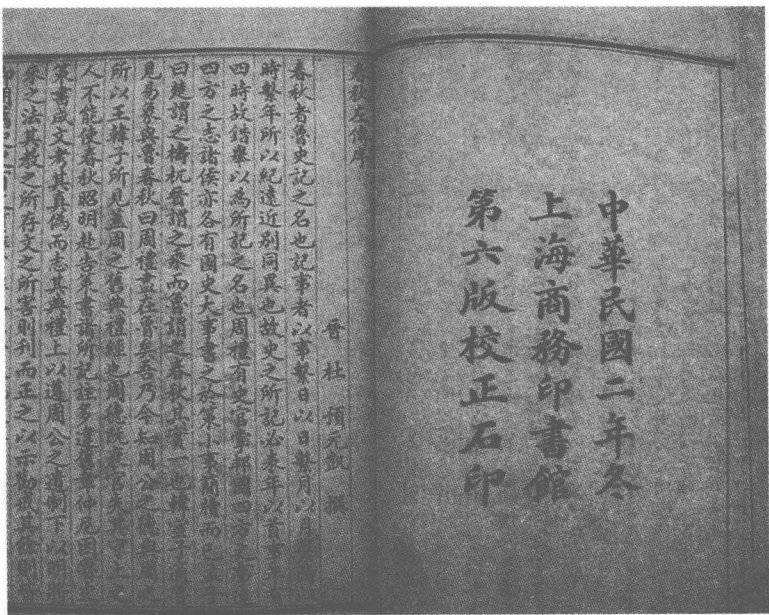 中華民國二年冬
上海商務印書館
第六版校正石印
春秋左傳序
晉 杜 預元凱 撰
春秋者魯史記之名也記事者以事繫日以日繫月以月
時繫年所以紀遠近別同異也故史之所記必表年以首事年
四時故錯舉以為所記之名也周禮有史官掌邦國四方之事
四方之志諸侯亦各有國史大事書之於策小事簡牘而已
曰楚謂之檮杌晉謂之乘而魯謂之春秋其實一也韓宣子
見易象與魯春秋曰周禮盡在魯矣吾乃今知周公之德與周
所以王韓子所見蓋周之舊典禮經也周德既衰官失其守上
人不能使春秋昭明赴告策書諸所記註多違舊章仲尼因魯史
策書成文考其真偽而志其典禮上以遵周公之遺制下以明將
來之法其教之所存文之所害則刊而正之以示勸戒其餘則